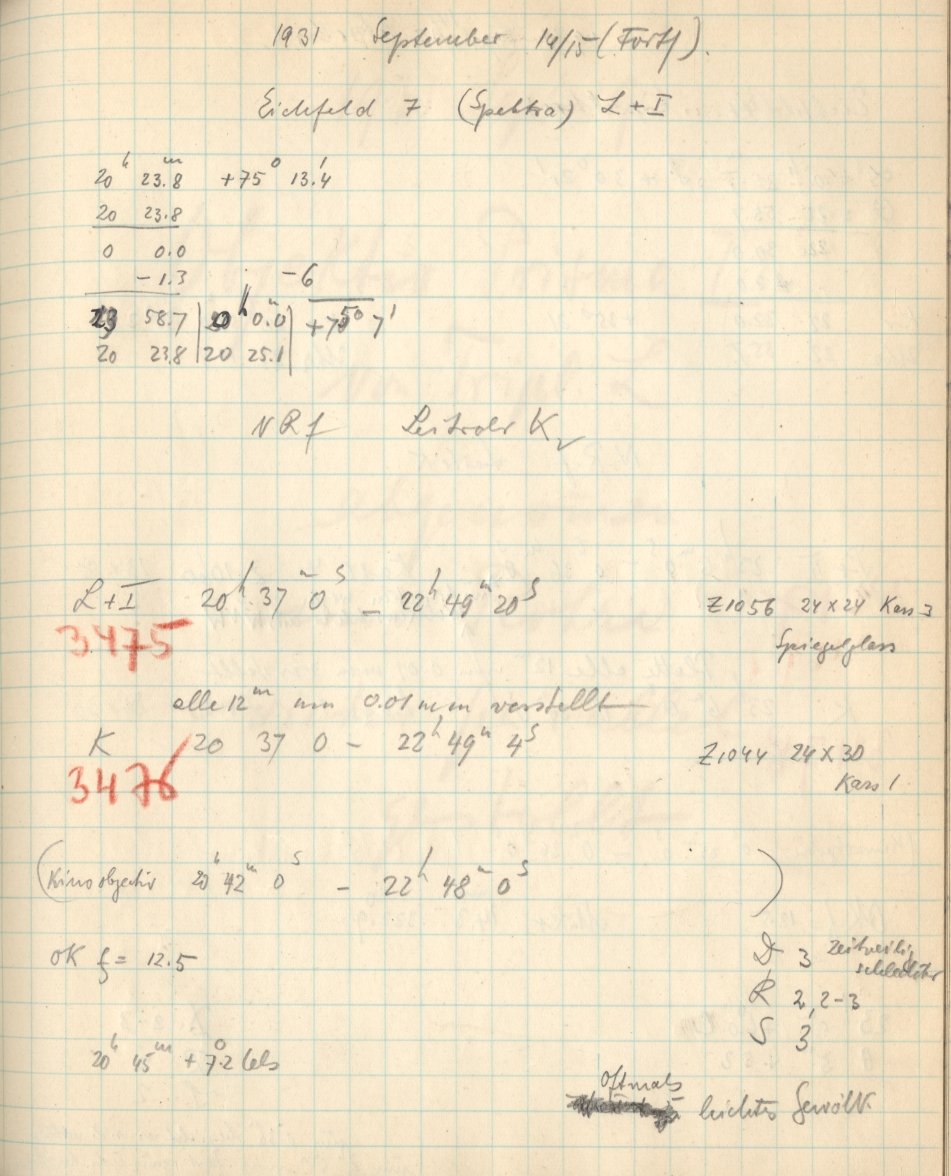 1931 September 14/15 (Forts).
Eichfeld 7 (Spektra) L + I
20ʰ 23.8ᵐ +75° 13.4'
20 23.8
0 0.0
- 1.3 - 6
23 58.7 | 20ʰ 0.0ᵐ | +75° 7'
20 23.8 | 20 25.1 |
N R f Leitrohr K
L + I 20ʰ 37ᵐ 0ˢ – 22ʰ 49ᵐ 20ˢ Z1056 24 x 24 Kass 3
3475 Spiegelglass
alle 12ᵐ um 0.01 mm verstellt
K 20 37 0 – 22ʰ 49ᵐ 4ˢ Z1044 24 x 30
3476 Kass 1
(Kinoobjectiv 20ʰ 42ᵐ 0ˢ – 22ʰ 48ᵐ 0ˢ )
OK f = 12.5 D 3 zeitweilig schlechter
R 2, 2-3
S 3
20ʰ 45ᵐ + 7.2° Cels
oftmals leichtes Gewölk